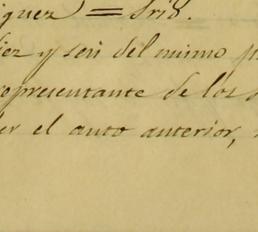 iguez = Srio.
diez y seis del mismo
representante de los
er el auto anterior,